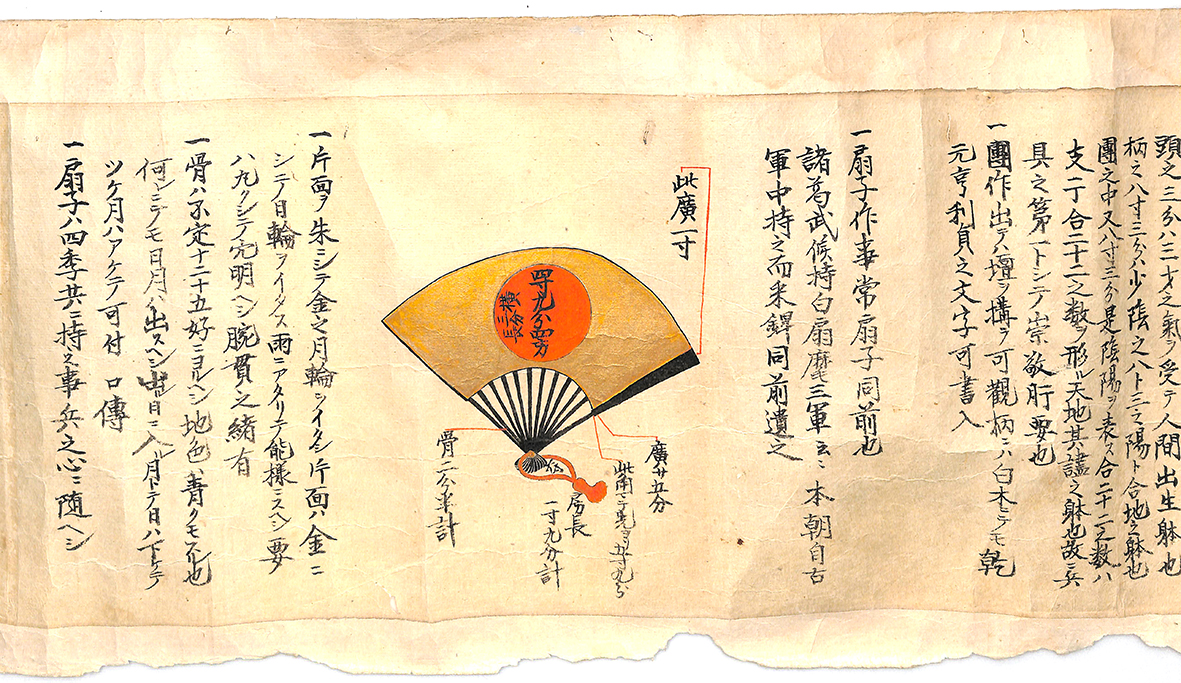 頭之三分ハ三才之氣ヲ受テ人間出生躰也
柄之八寸三分ハ少陰之八ト三之陽ト合地之躰也
團之中又八寸三分是陰陽ヲ表ス合二十二之数ハ
支干合二十二之数ヲ形ル天地其儘之躰也故ニ兵
具之第一トシテ崇敬肝要也
一團作出テハ壇ヲ構ヲ可觀柄ニハ白木ニテモ乾
元亨利貞之文字可書入
一扇子作事常扇子同前也
諸葛武候持白扇麾三軍云ニ本朝自古
軍中持之而釆錍同前遣之
此廣一寸
四寸九分
横
三分
長
廣廿五分
此角ヨリ先ヨリ五寸九分
房長
一寸九分計
骨二分半計
一片面ヲ朱ニシテ金之月輪ヲイタシ片面ハ金ニ
シテ日輪ヲイタス雨ニアタリテ能様ニスヘシ要
ハ丸クシテ穴明ヘシ腕貫之緒有
一骨ハ不定十二十五好ニヨルヘシ地色ハ青クモスル也
何レニテモ日月ハ出スヘシ出ル日ニ入ル月トテ日ハ下ケテ
ツケ月ハアケテ可付 口傳
一扇子ハ四季共ニ持之事兵之心ニ随ヘシ